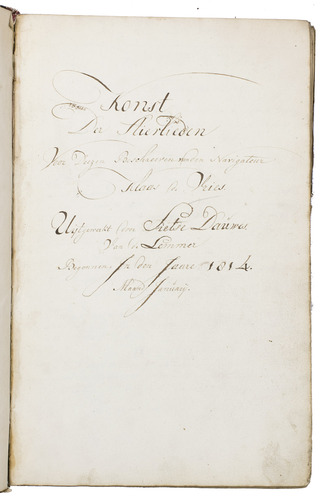 Konst
Der Stierlieden
Voor Dezen Beschreeven van den Navigateur
Klaas de Vries
Uytgewerkt door Sietse Douwes
Van de Lemmer
Begonnen In den Jaare 1814.
Maand January.